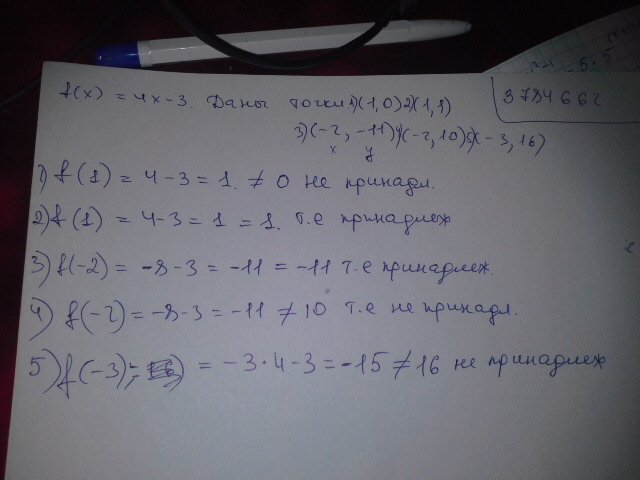 f(x) = 4x-3. Даны точки 1)(1,0) 2)(1,1)
3784662
3)(-2, -11) 4)(-2, 10) 5)(-3, 16)
x y
1) f(1) = 4-3 = 1. ≠ 0 не принадл.
2) f(1) = 4-3 = 1 = 1. т.е принадлеж
3) f(-2) = -8-3 = -11 = -11 т.е принадлеж.
4) f(-2) = -8-3 = -11 ≠ 10 т.е не принадл.
5) f(-3) = -3·4-3 = -15 ≠ 16 не принадлеж